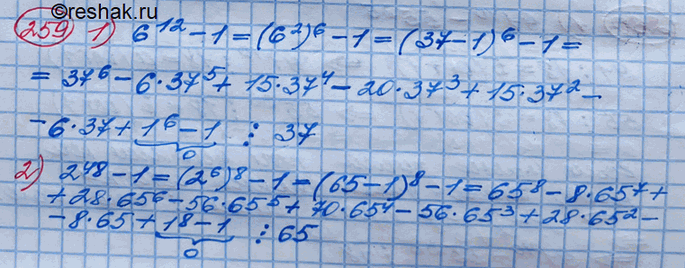 ©reshak.ru
259 1) 6¹² − 1 = (6²)⁶ − 1 = (37−1)⁶ − 1 =
= 37⁶ − 6·37⁵ + 15·37⁴ − 20·37³ + 15·37² −
− 6·37 + 1⁶ − 1 ⋮ 37
0
2) 2⁴⁸ − 1 = (2⁶)⁸ − 1 = (65−1)⁸ − 1 = 65⁸ − 8·65⁷ +
+ 28·65⁶ − 56·65⁵ + 70·65⁴ − 56·65³ + 28·65² −
− 8·65 + 1⁸ − 1 ⋮ 65
0